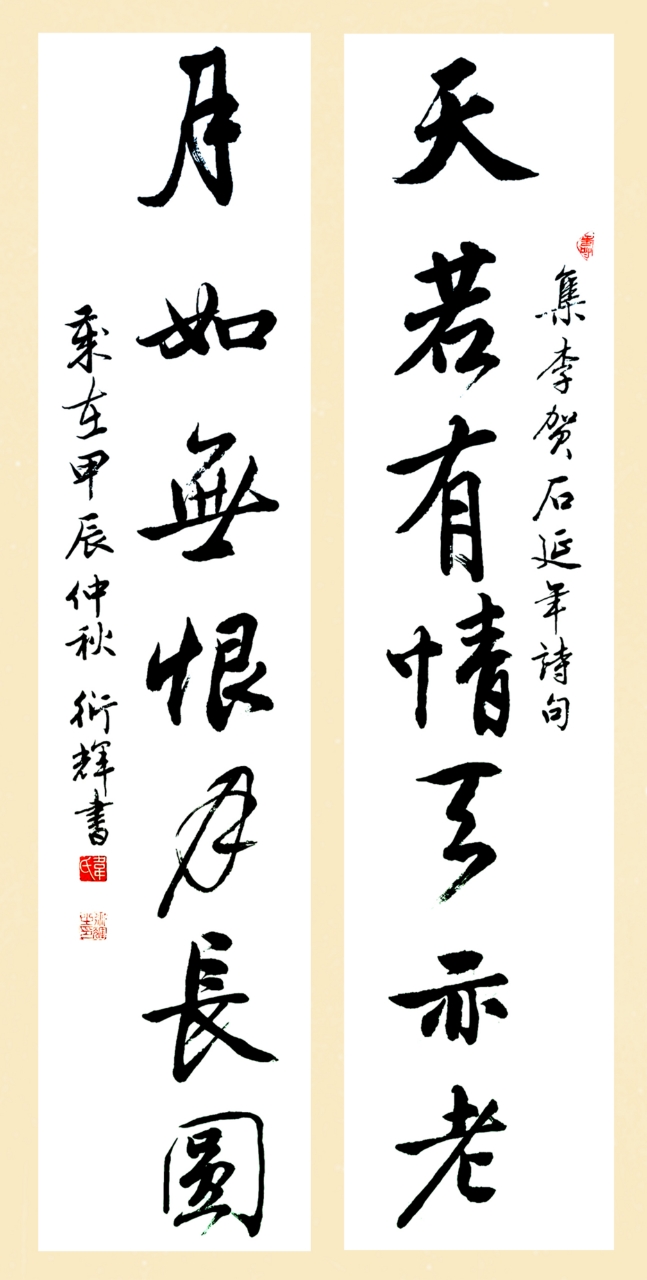 集李贺石延年詩句
天若有情天亦老
月如無恨月長圓
歲在甲辰仲秋 衍輝書
韋氏